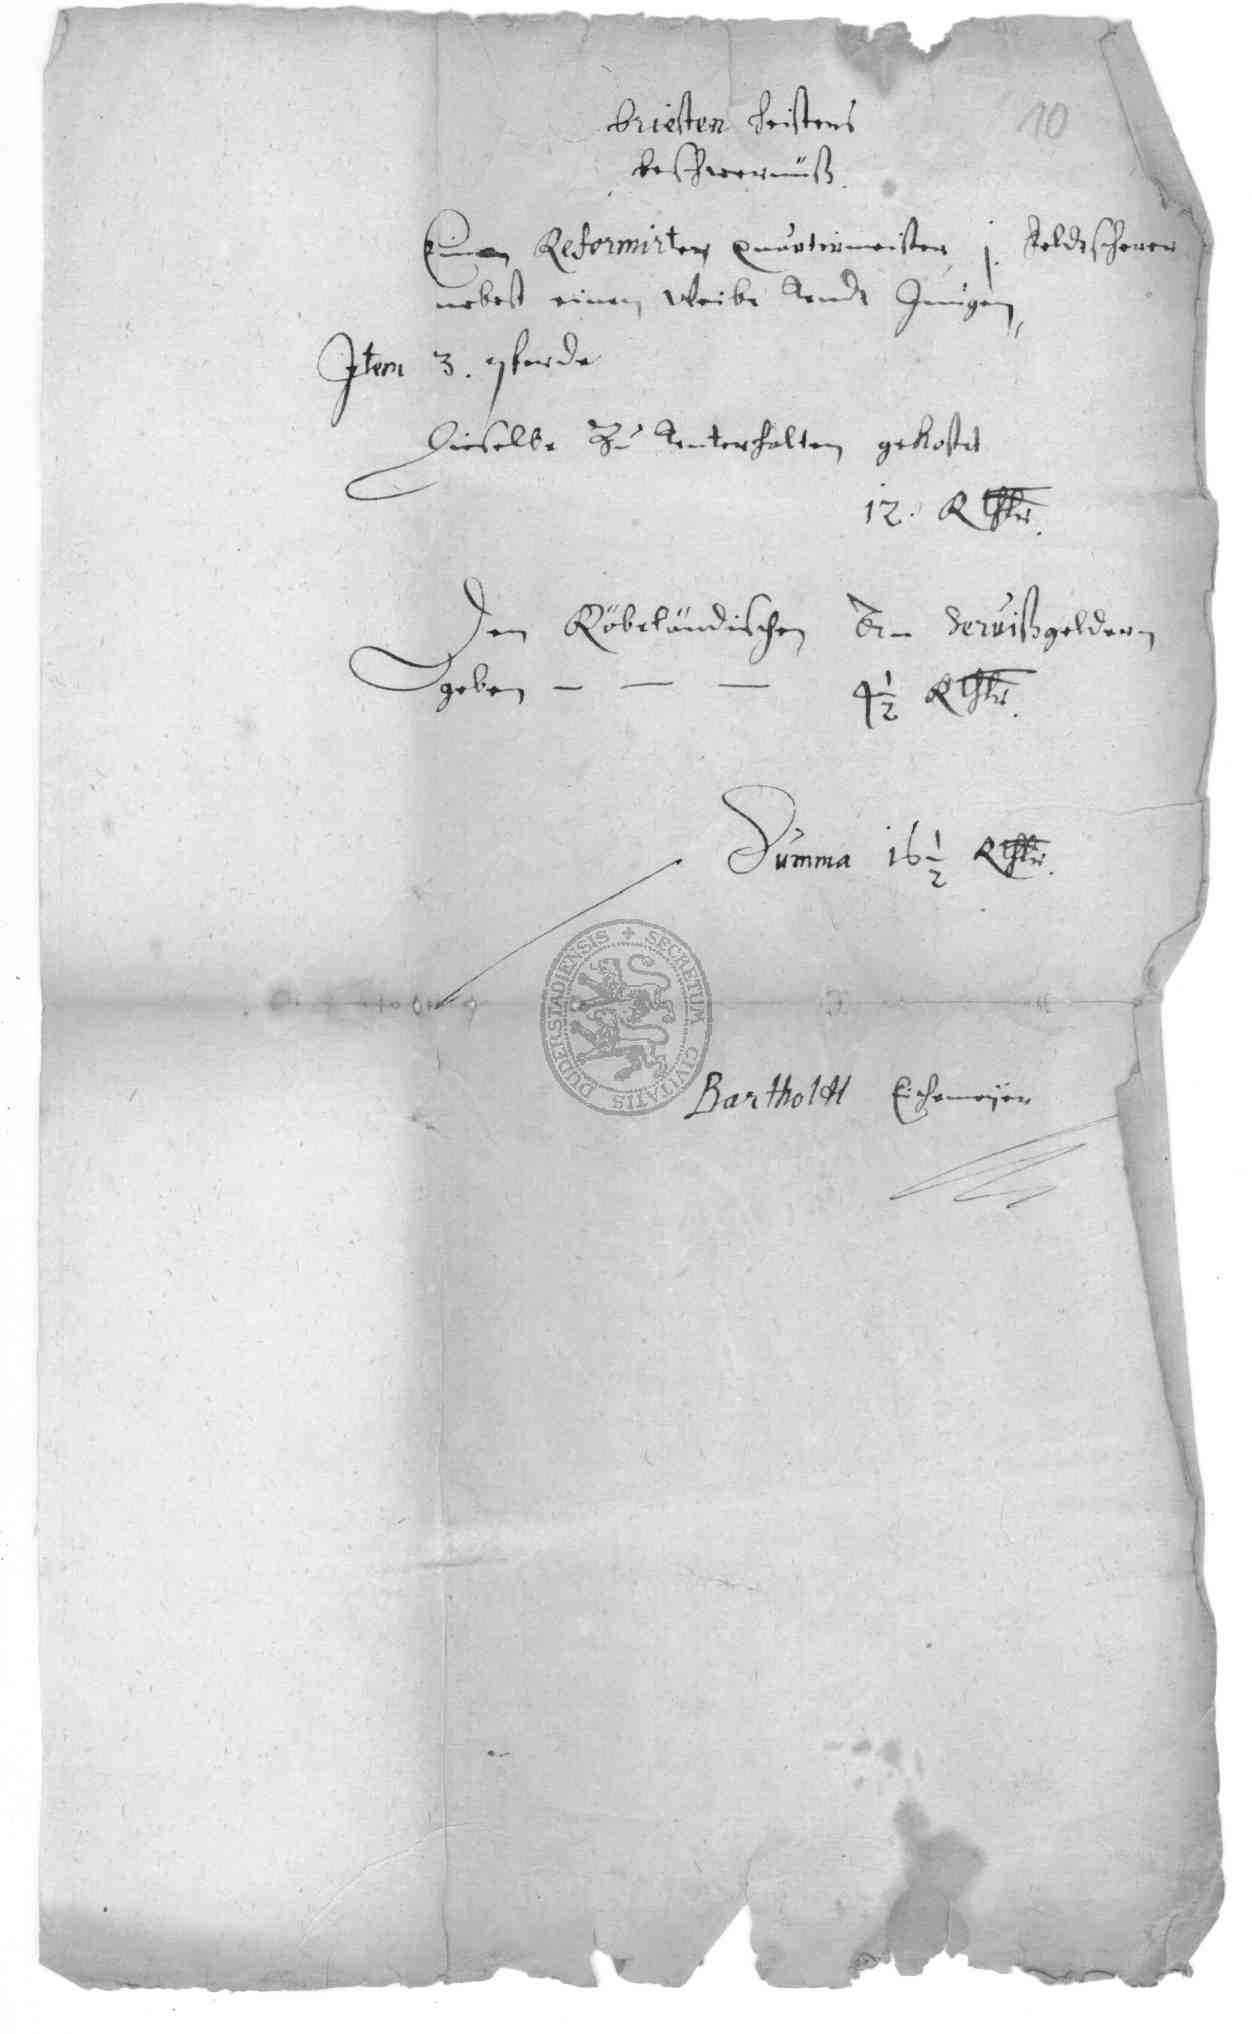 10
beschwernüß
Einen Reformirten quartirmeister j. Feldtscherer
nebest einen Weibe Vndt Jungen,
Item 3. pferde
Dieselbe Zu Vnterhalten gekostet
12. Rthlr.
Den Servißgeldern
geben — — — 4 1/2 Rthlr.
Summa 16 1/2 Rthlr.
SECRETUM CIVITATIS DUDERSTADIENSIS
Bartholdt Eichemeyer